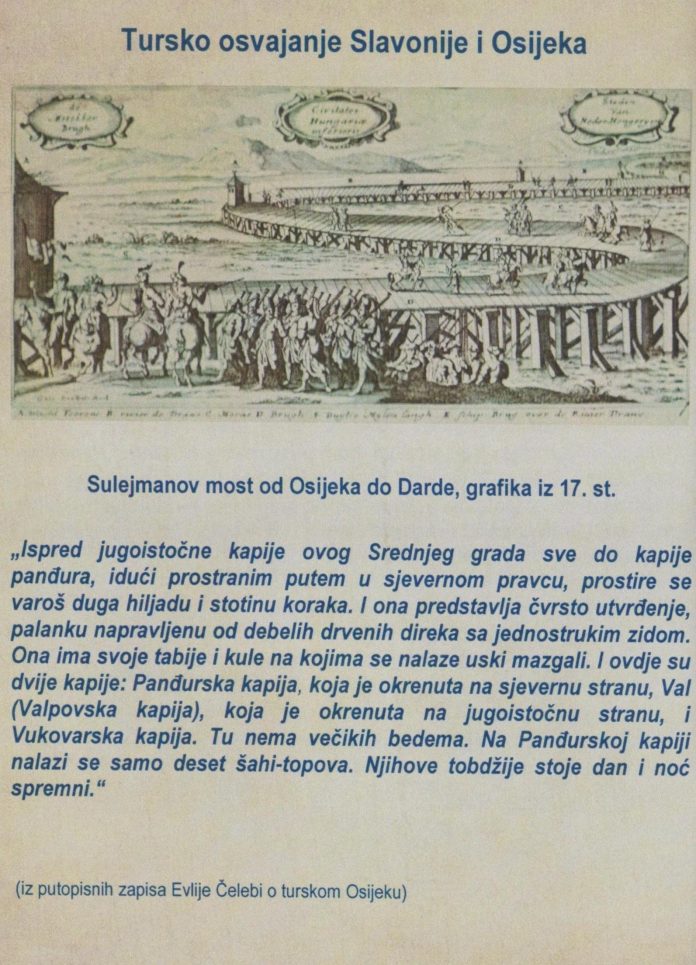 Tursko osvajanje Slavonije i Osijeka
de
Brugh
Civitates
Hungariæ
inferioris
Steden
Van
Neder Hongeryen
Sulejmanov most od Osijeka do Darde, grafika iz 17. st.
„Ispred jugoistočne kapije ovog Srednjeg grada sve do kapije
panđura, idući prostranim putem u sjevernom pravcu, prostire se
varoš duga hiljadu i stotinu koraka. I ona predstavlja čvrsto utvrđenje,
palanku napravljenu od debelih drvenih direka sa jednostrukim zidom.
Ona ima svoje tabije i kule na kojima se nalaze uski mazgali. I ovdje su
dvije kapije: Panđurska kapija, koja je okrenuta na sjevernu stranu, Val
(Valpovska kapija), koja je okrenuta na jugoistočnu stranu, i
Vukovarska kapija. Tu nema večikih bedema. Na Panđurskoj kapiji
nalazi se samo deset šahi-topova. Njihove tobdžije stoje dan i noć
spremni.“
(iz putopisnih zapisa Evlije Čelebi o turskom Osijeku)